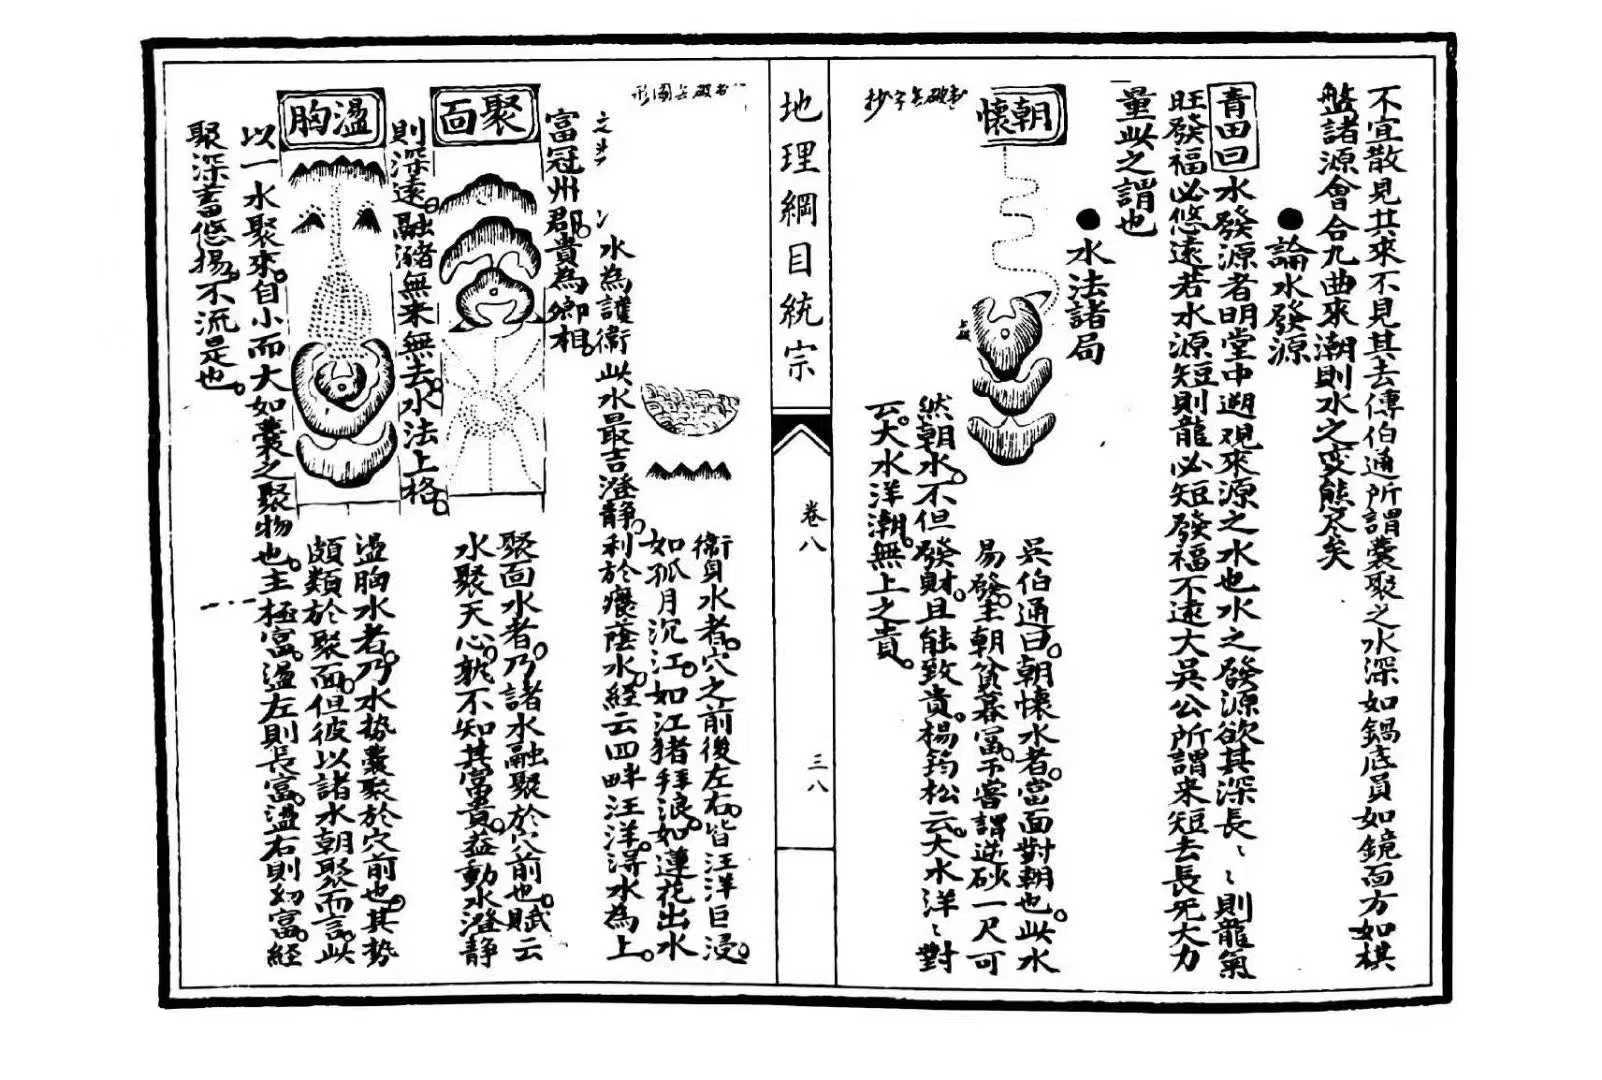 不宜散見其來不見其去傳伯通所謂囊聚之水深如鍋底員如鏡面方如棋
盤諸源會合九曲來潮則水之変態尽矣
●論水發源
青田曰水發源者明堂中遡观來源之水也水之發源欲其深長〻〻則龍氣
旺發福必悠遠若水源短則龍必短發福不遠大吳公所謂來短去長死大力
量此之謂也
●水法諸局
朝懷
吳伯通曰。朝懷水者。當面對朝也。此水
易發。主朝貧暮富。不嘗謂逆砂一尺可
然朝水。不但發財。且能致貴。楊筠松云。大水洋〻對
云。大水洋潮。無上之貴。
地理綱目統宗
卷八
三八
衛身水者。穴之前後左右。皆汪洋巨浸。
如孤月沉江。如江猪拜浪。如蓮花出水
水為護衛此水最吉澄靜。利於癊蔭水。経云四畔汪洋。淂水為上。
富冠州郡。貴為卿相。
聚面
聚面水者。乃諸水融聚於穴前也。賦云
水聚天心。孰不知其富貴。葢動水澄静
則深遠。融瀦無来無去。水法上格。
盪胸
盪胸水者。乃水势囊聚於穴前也。其势
頗類於聚面。但彼以諸水朝聚而言。此
以一水聚來。自小而大如囊之聚物也。主極富。盪左則長富。盪右則幼富。経
聚深畜悠揚。不流是也。